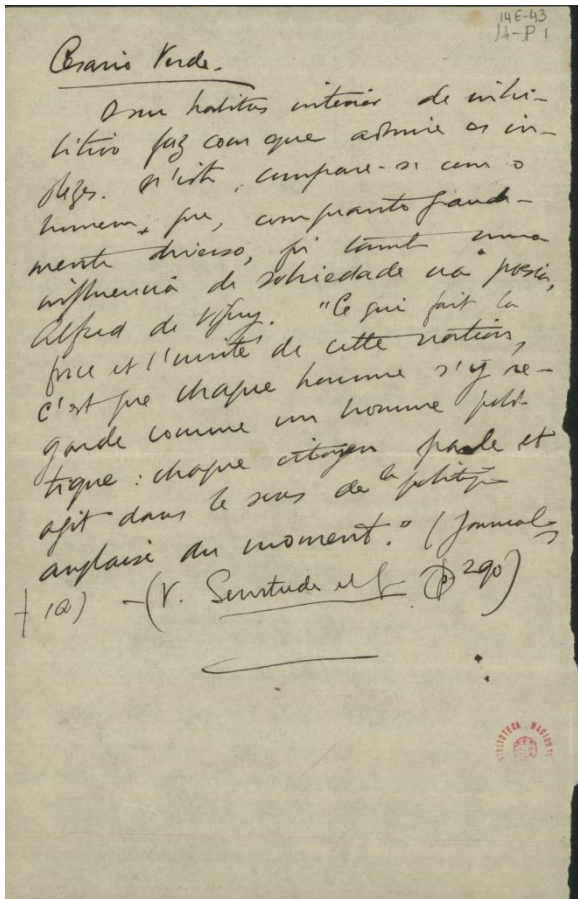 14E-43
Cesario Verde.
O seu habitus interior de
faz com que admire os in-
glezes. N'isto, compare-se com o
homem, que, comquanto grande-
mente diverso, foi tambem uma
influencia de sobriedade na poesia,
Alfred de Vigny. "Ce qui fait la
force et l'unité de cette nation,
c'est que chaque homme s'y re-
garde comme un homme poli-
tique: chaque citoyen parle et
agit dans le sens de la politique
anglaise du moment." (Journal
) - (V. Servitude et p 290)
BIBLIOTECA NACIONAL